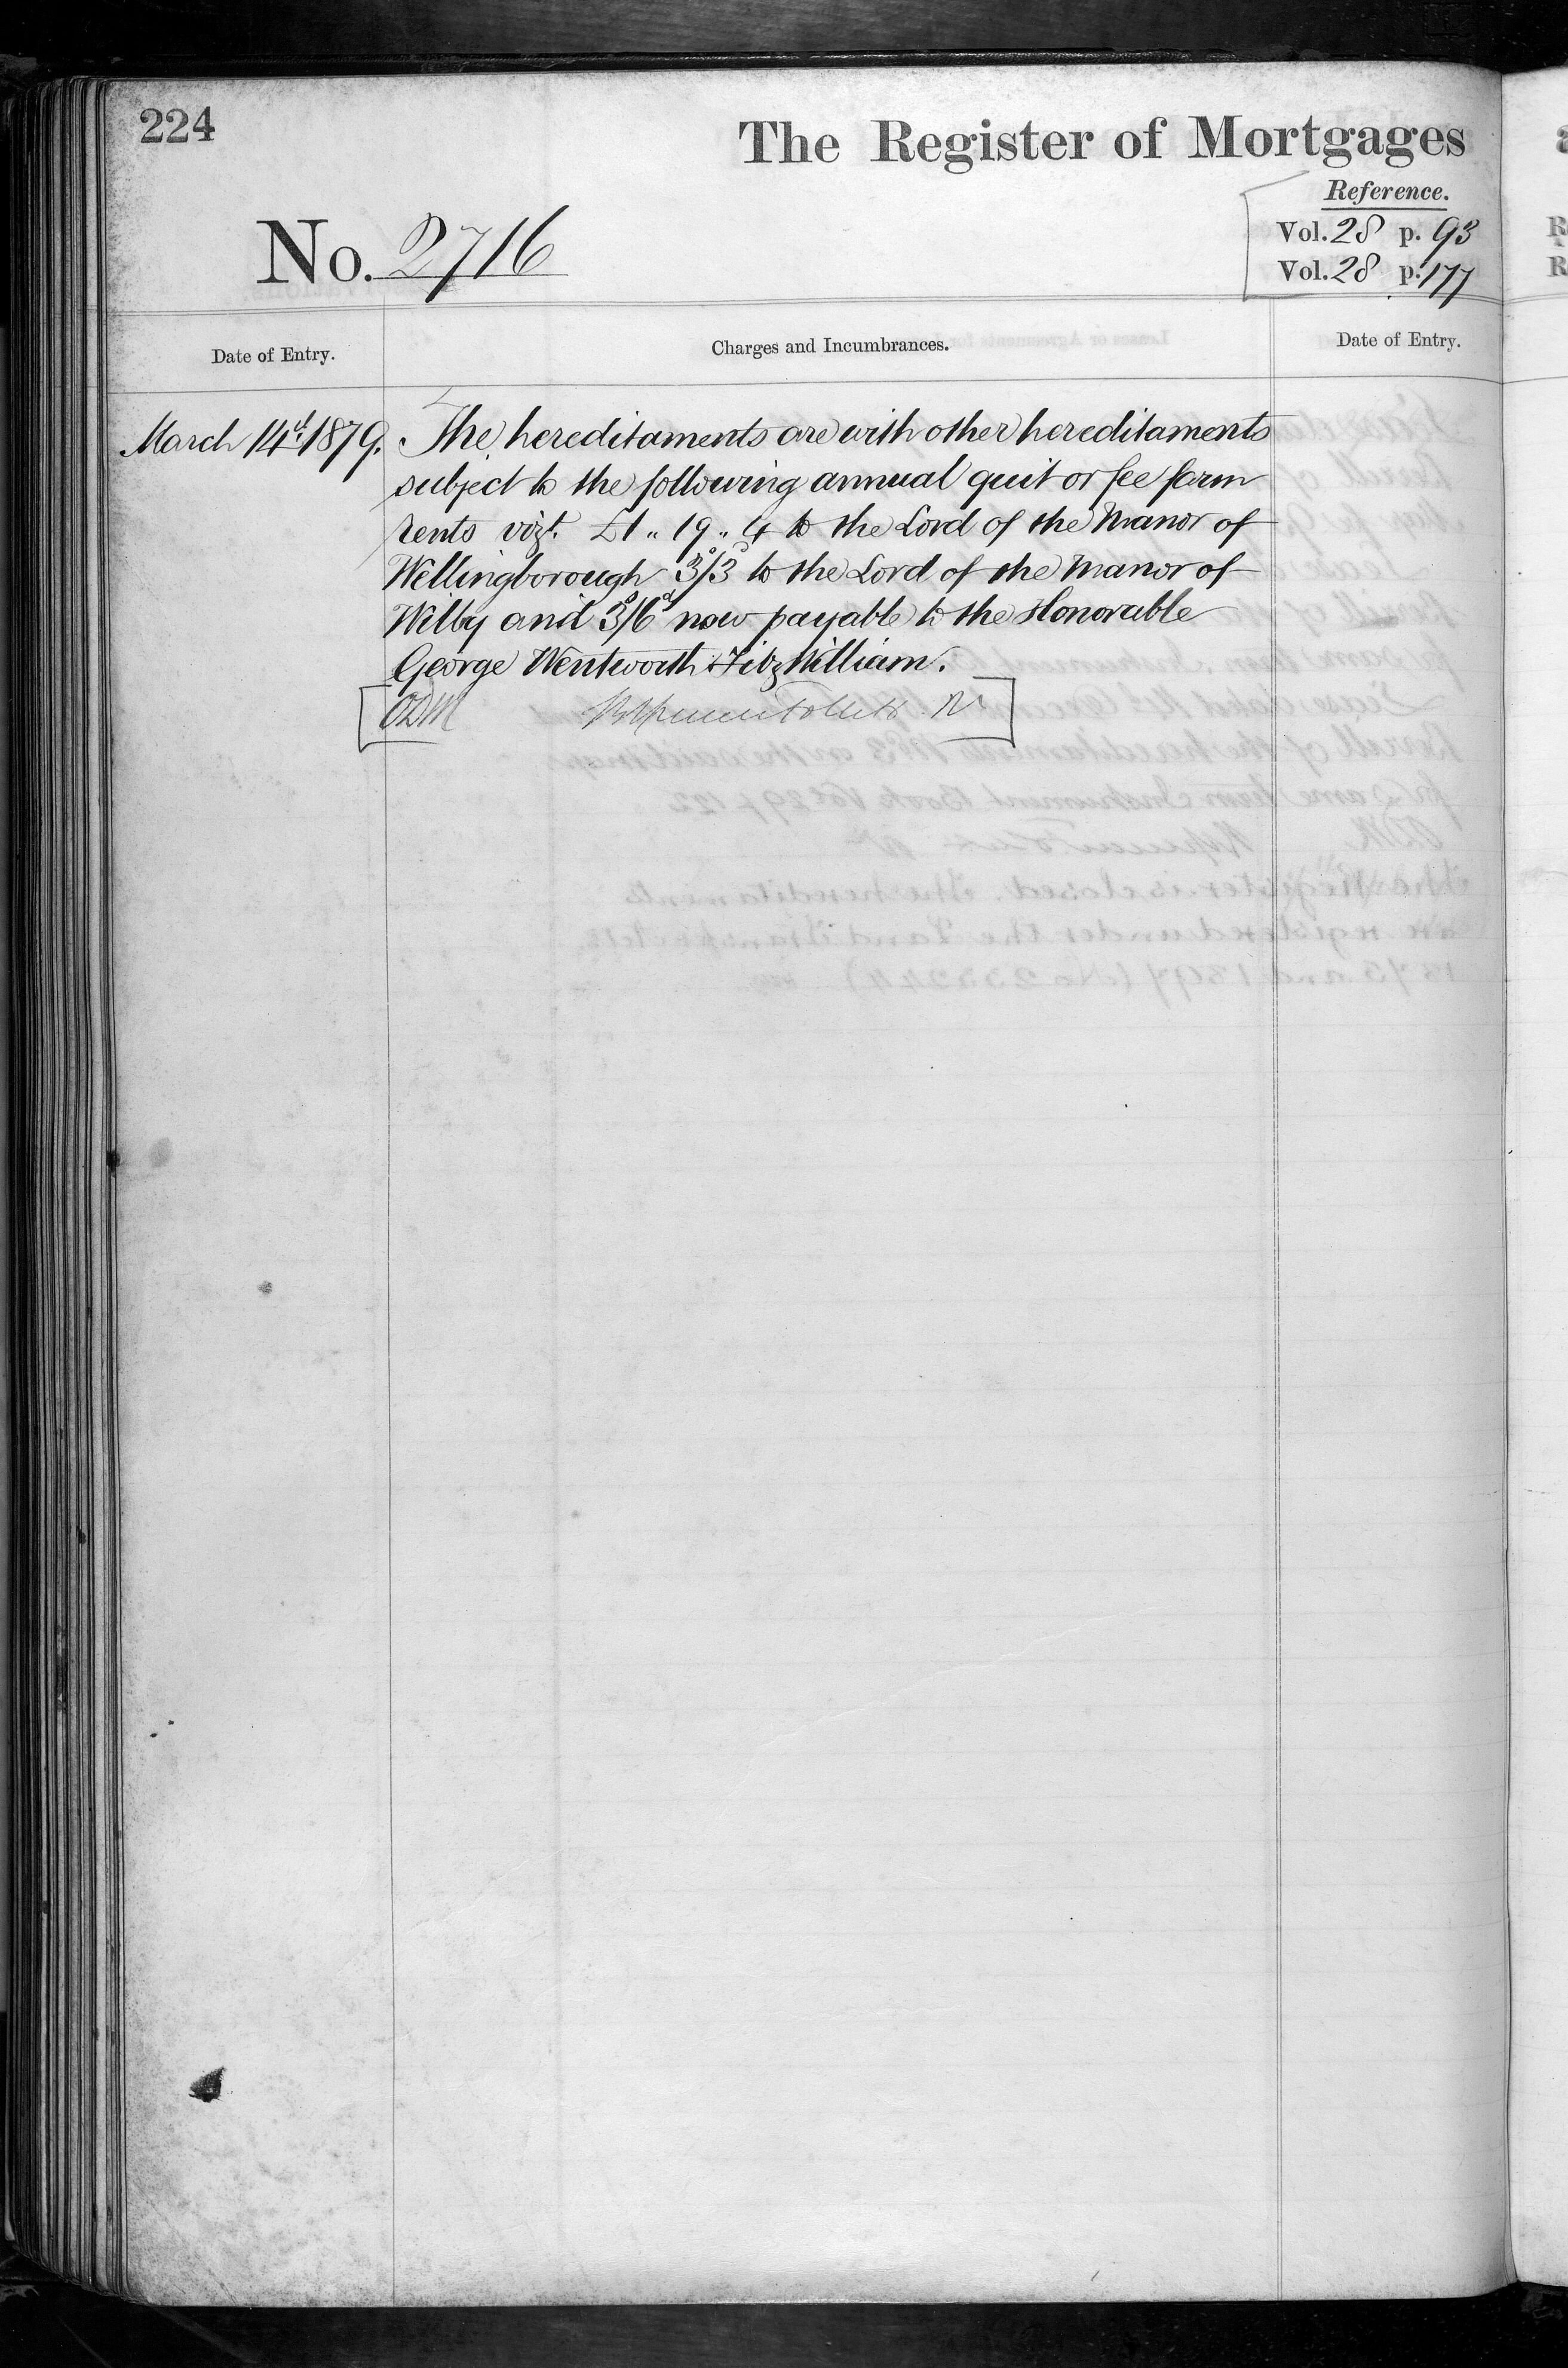 224
The Register of Mortgages
Reference.
No. 2716
Vol. 28 p. 93
Vol. 28 p. 177
Date of Entry.
Charges and Incumbrances.
Date of Entry.
March 14th 1879.
The hereditaments are with other hereditaments
subject to the following annual quit or fee farm
rents vizt. £1 " 19 " 4 to the Lord of the Manor of
Wellingborough 3s/3d to the Lord of the Manor of
Wilby and 3s/6d now payable to the Honorable
George Wentworth FitzWilliam.